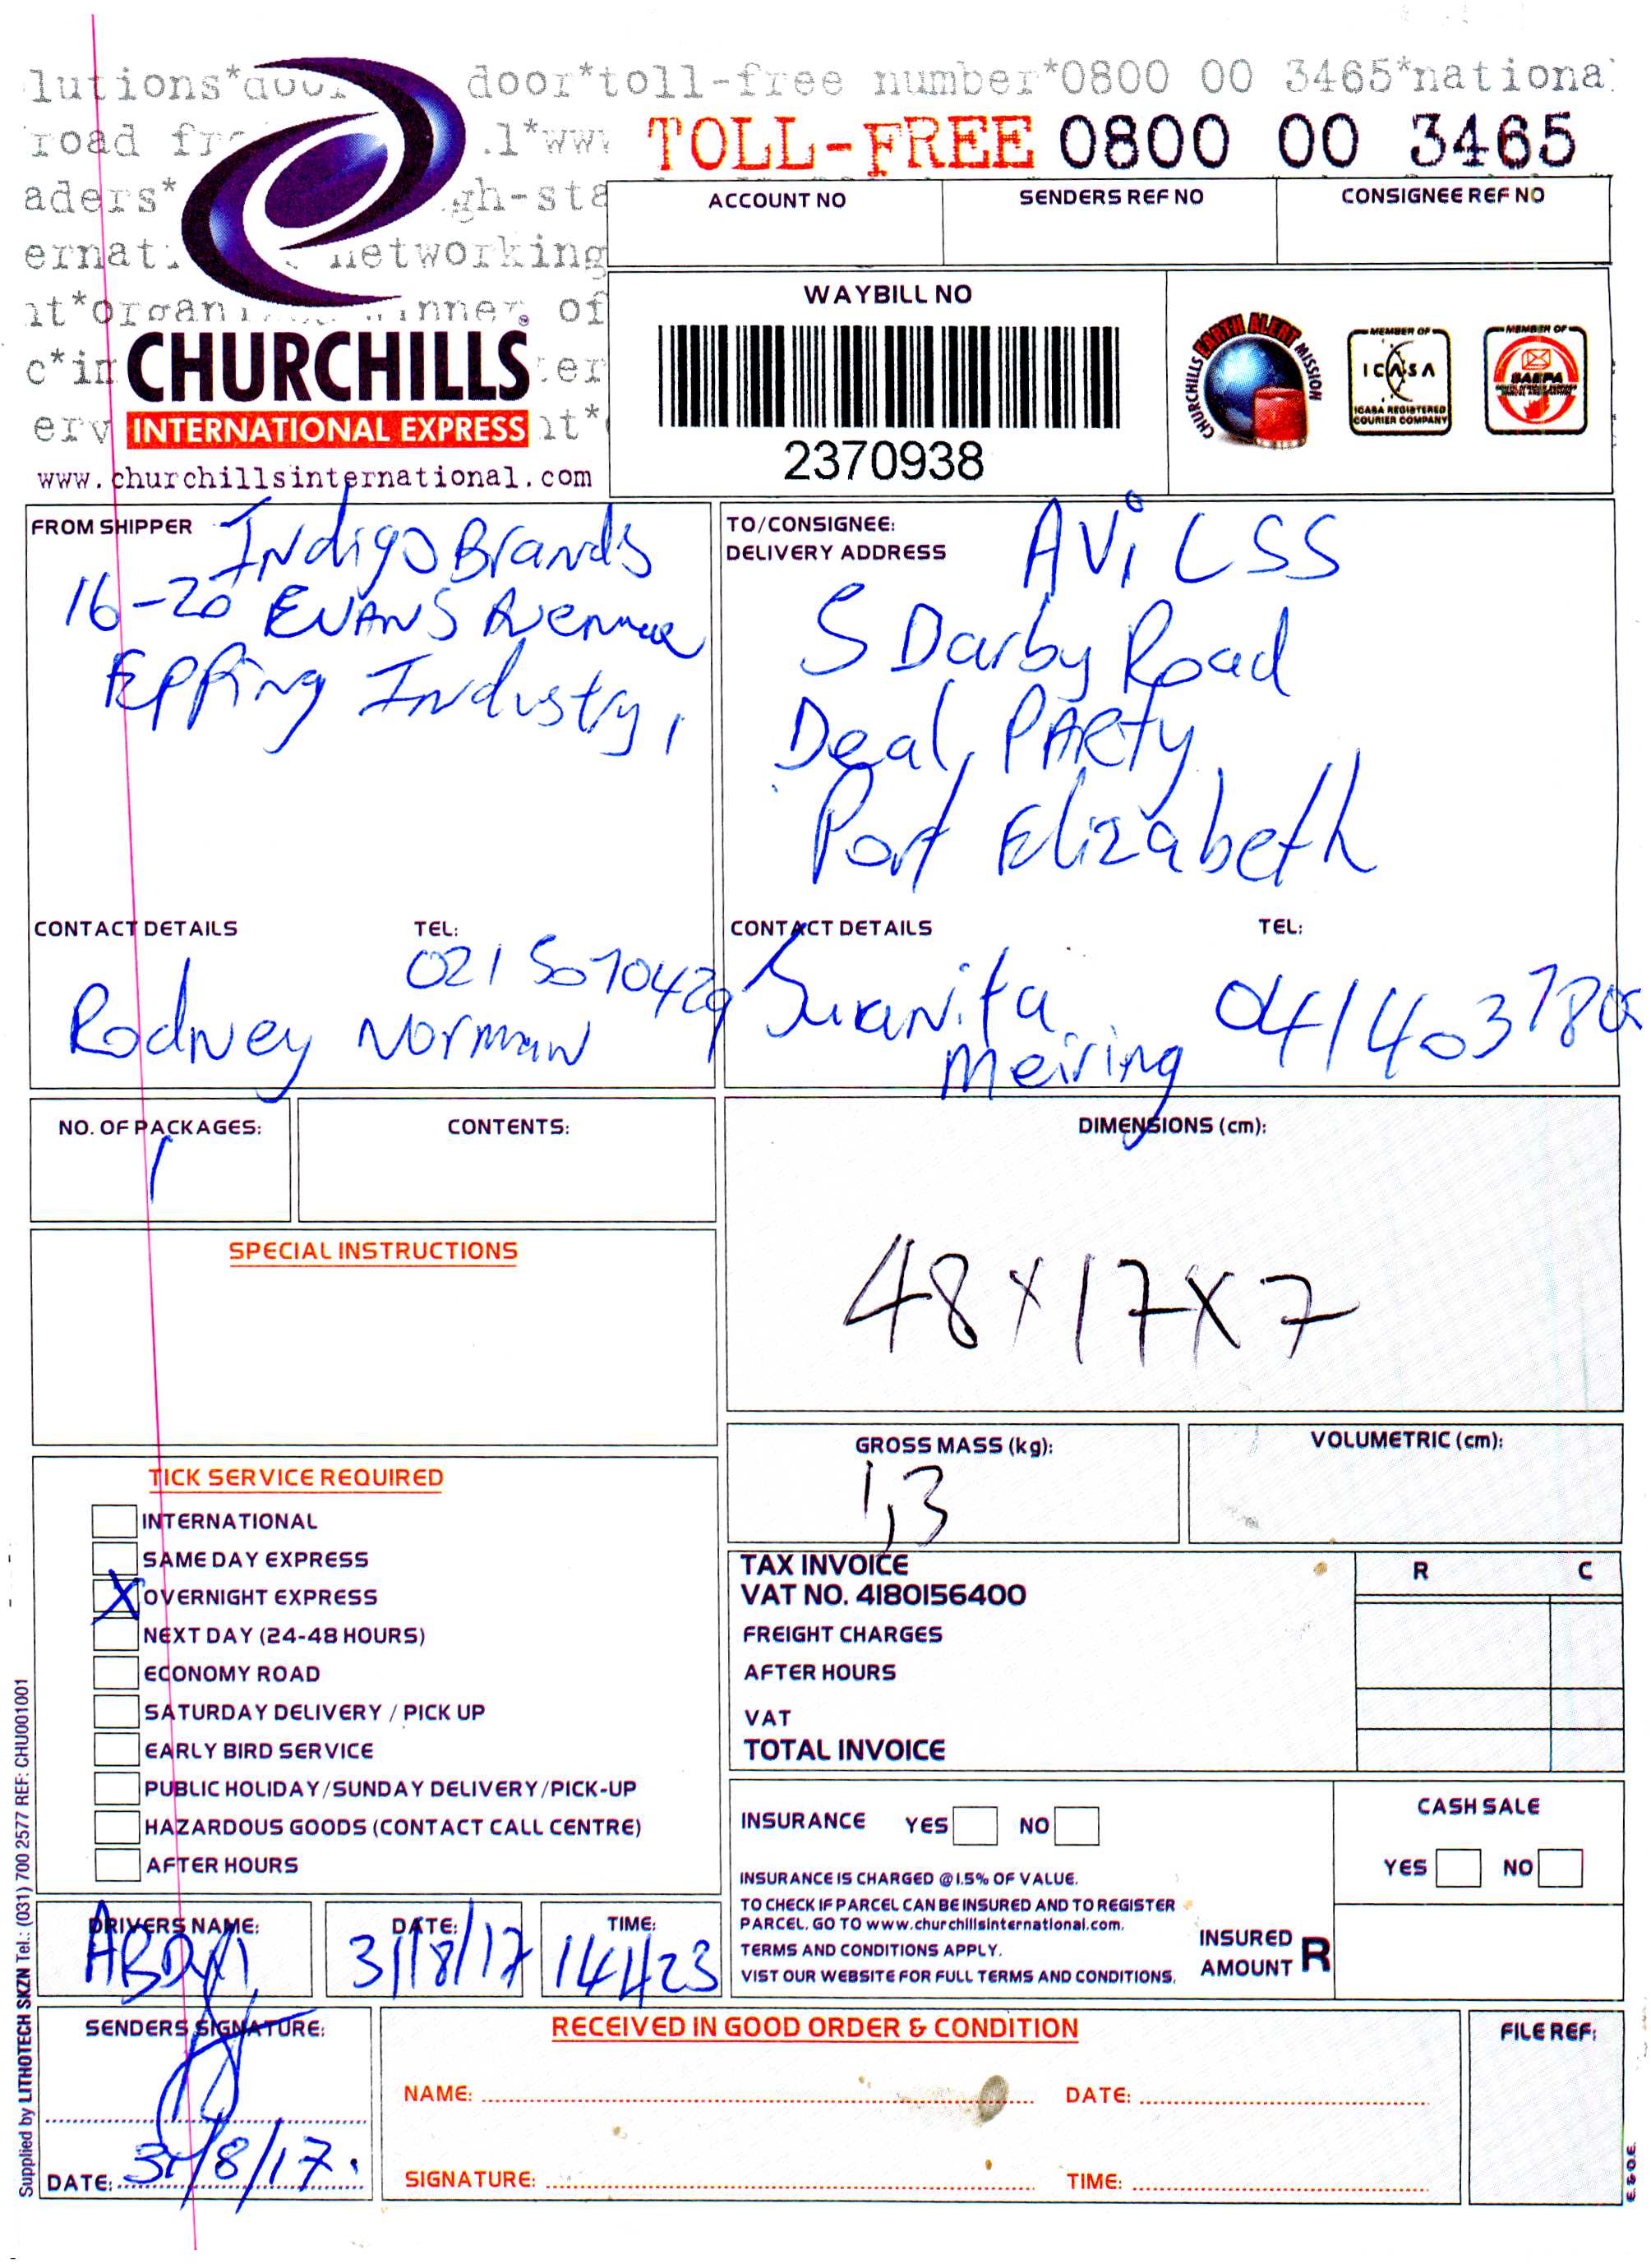 lutions*door door*toll-free number*0800 00 3465*national
road fr .l*www TOLL-FREE 0800 00 3465
aders* gh-sta
ACCOUNT NO SENDERS REF NO CONSIGNEE REF NO
ernati networking
WAYBILL NO
nt*organi inner of
c*in ter
CHURCHILLS
erv nt*
INTERNATIONAL EXPRESS
www.churchillsinternational.com
2370938
CHURCHILLS EARTH ALERT MISSION
MEMBER OF
ICASA
ICASA REGISTERED
COURIER COMPANY
MEMBER OF
SAEPA
FROM SHIPPER Indigo Brands
16-20 EVANS Avenue
Epping Industry,
TO/CONSIGNEE:
DELIVERY ADDRESS AVi LSS
5 Darby Road
Deal PARTy
Port Elizabeth
CONTACT DETAILS TEL:
021 5070429
Rodney Norman
CONTACT DETAILS TEL:
Juanita 041403780
Meiring
NO. OF PACKAGES:
1
CONTENTS:
DIMENSIONS (cm):
48 x 17 x 7
SPECIAL INSTRUCTIONS
GROSS MASS (kg):
1,3
VOLUMETRIC (cm):
TICK SERVICE REQUIRED
INTERNATIONAL
SAME DAY EXPRESS
X OVERNIGHT EXPRESS
NEXT DAY (24-48 HOURS)
ECONOMY ROAD
SATURDAY DELIVERY / PICK UP
EARLY BIRD SERVICE
PUBLIC HOLIDAY/SUNDAY DELIVERY/PICK-UP
HAZARDOUS GOODS (CONTACT CALL CENTRE)
AFTER HOURS
TAX INVOICE R C
VAT NO. 4180156400
FREIGHT CHARGES
AFTER HOURS
VAT
TOTAL INVOICE
INSURANCE YES NO
CASH SALE
YES NO
INSURANCE IS CHARGED @1.5% OF VALUE.
TO CHECK IF PARCEL CAN BE INSURED AND TO REGISTER
PARCEL, GO TO www.churchillsinternational.com.
TERMS AND CONDITIONS APPLY.
VIST OUR WEBSITE FOR FULL TERMS AND CONDITIONS.
INSURED
AMOUNT R
DRIVERS NAME:
DATE: 31/8/17
TIME: 14H23
SENDERS SIGNATURE:
DATE: 31/8/17.
RECEIVED IN GOOD ORDER & CONDITION
NAME: DATE:
SIGNATURE: TIME:
FILE REF:
E.&O.E.
Supplied by LITHOTECH SKZN Tel.: (031) 700 2577 REF: CHU001001